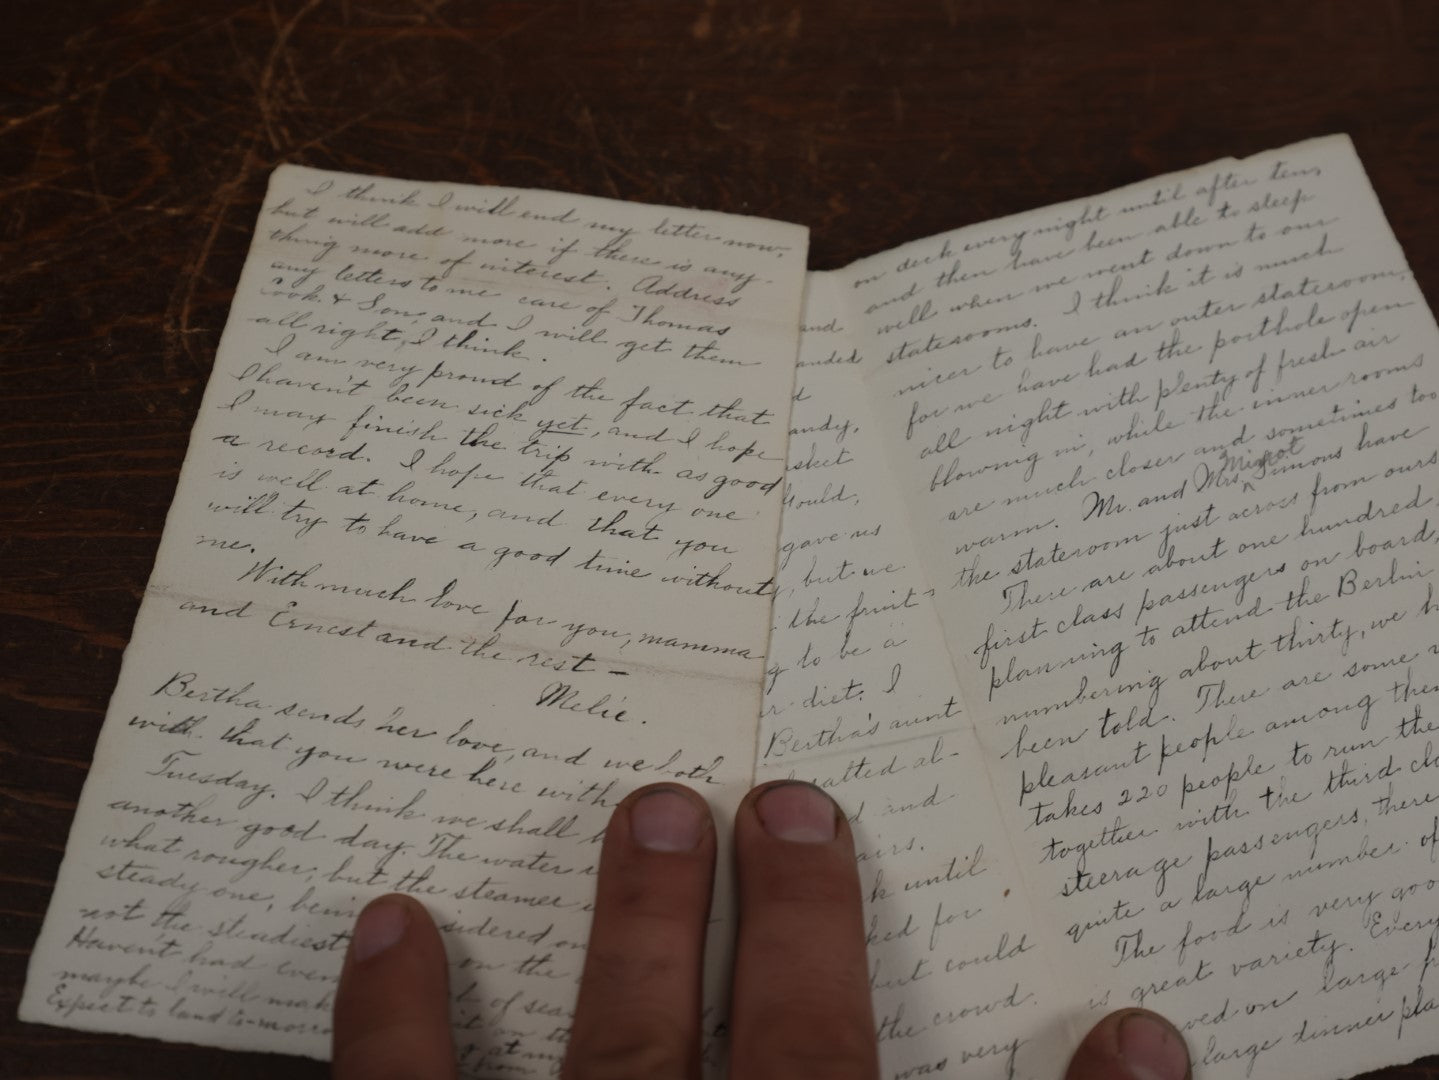 I think I will end my letter now,
but will add more if there is any-
thing more of interest. Address
any letters to me care of Thomas
Cook & Son, and I will get them
all right, I think.
I am very proud of the fact that
I haven't been sick yet, and I hope
I may finish the trip with as good
a record. I hope that every one
is well at home, and that you
will try to have a good time without
me.
With much love for you, mamma
and Ernest and the rest –
Melie.
Bertha sends her love, and we both
wish that you were here with
Tuesday. I think we shall
another good day. The water
what rougher, but the steamer
steady one, bein sidered on
not the steadiest on the
Haven't had even t of sea
maybe I will mak it on the
Expect to land to-morro
and
anded
d
andy,
asket
Gould,
gave us
, but we
the fruit
g to be a
r diet. I
Bertha's aunt
salted al-
d and
airs.
k until
ked for
but could
the crowd.
was very
on deck every night until after ten,
and then have been able to sleep
well when we went down to our
staterooms. I think it is much
nicer to have an outer stateroom,
for we have had the porthole open
all night with plenty of fresh air
blowing in, while the inner rooms
are much closer and sometimes too
warm. Mr. and Mrs. Minot Simons have
the stateroom just across from ours
There are about one hundred
first class passengers on board,
planning to attend the Berlin
numbering about thirty, we h
been told. There are some
pleasant people among them
takes 220 people to run the
together with the third cl
steerage passengers, there
quite a large number of
The food is very goo
is great variety. Every
ved on large p
large dinner pla